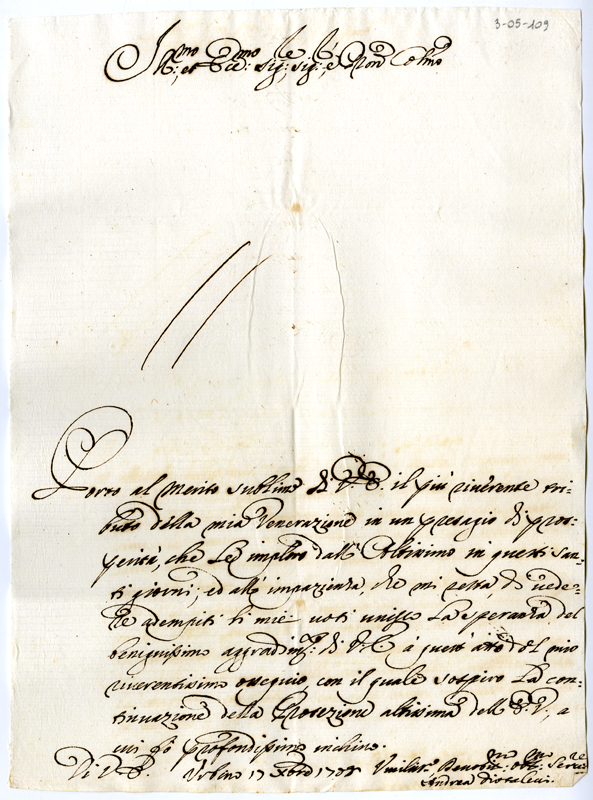 3-05-109
Ill.mo et Ecc.mo Sig.r Sig.r e Pron Colmo
Porto al merito sublime di V. E. il più riverente tri-
buto della mia Venerazione in un presagio di pros-
perità, che Le imploro dall' Altissimo in questi san-
ti giorni; ed all' impazienza, che mi resta, di vede-
re adempiti li miei voti unisco La speranza del
benignissimo aggradim.to di V. E. à questo atto del mio
riverentissimo ossequio con il quale sospiro La con-
tinuazione della Protezione altissima dell' E. V., a
cui fò profondissimo inchino.
Di V. E. Urbino 17 Xbre Umiliss. Devotis. Obl. Serv.re
Andrea